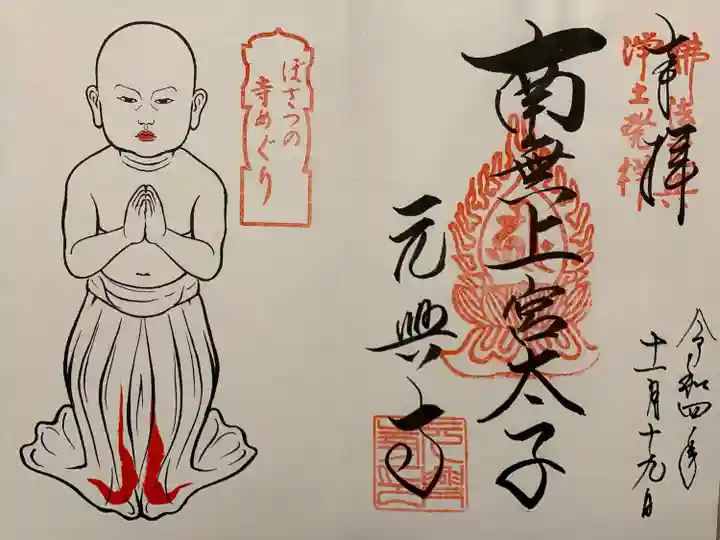 奉拝
佛法興
浄土発祥
令和四年
十一月十九日
南無上宮太子
元興寺
ぼさつの
寺めぐり